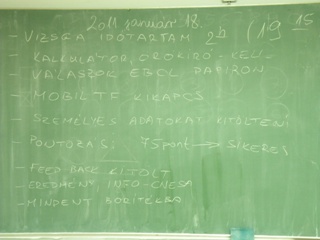 2011 január 18.
- VIZSGA IDŐTARTAM 2h (19 15
- KALKULÁTOR, ÖRÖKÍRÓ
- VÁLASZOK EBCL PAPÍRON
- MOBIL TF KIKAPCS
- SZEMÉLYES ADATOKAT KITÖLTENI
- PONTOZÁS: 75 pont → SIKERES
- FEED-BACK KITÖLT
- EREDMÉNY, INFO-
- MINDENT BORÍTÉKBA